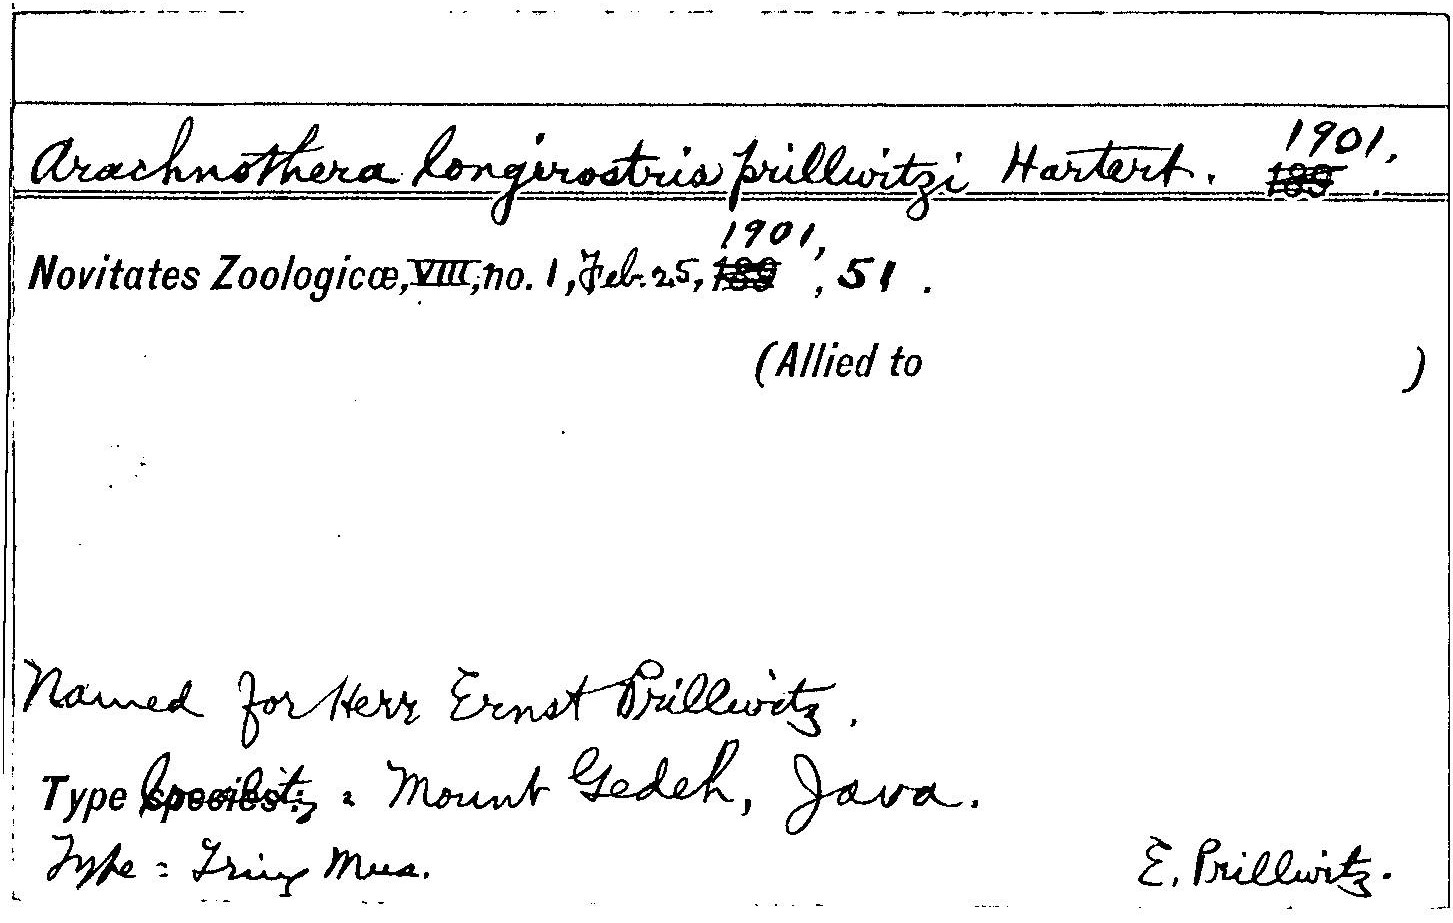 Arachnothera longirostris prillwitzi Hartert. 1901.
189 .
Novitates Zoologicæ, VIII, no. 1, Feb. 25, 1901, 189 , 51 .
(Allied to )
Named for Herr Ernst Prillwitz.
Type species: locality = Mount Gedeh, Java.
Type = Tring Mus. E. Prillwitz.